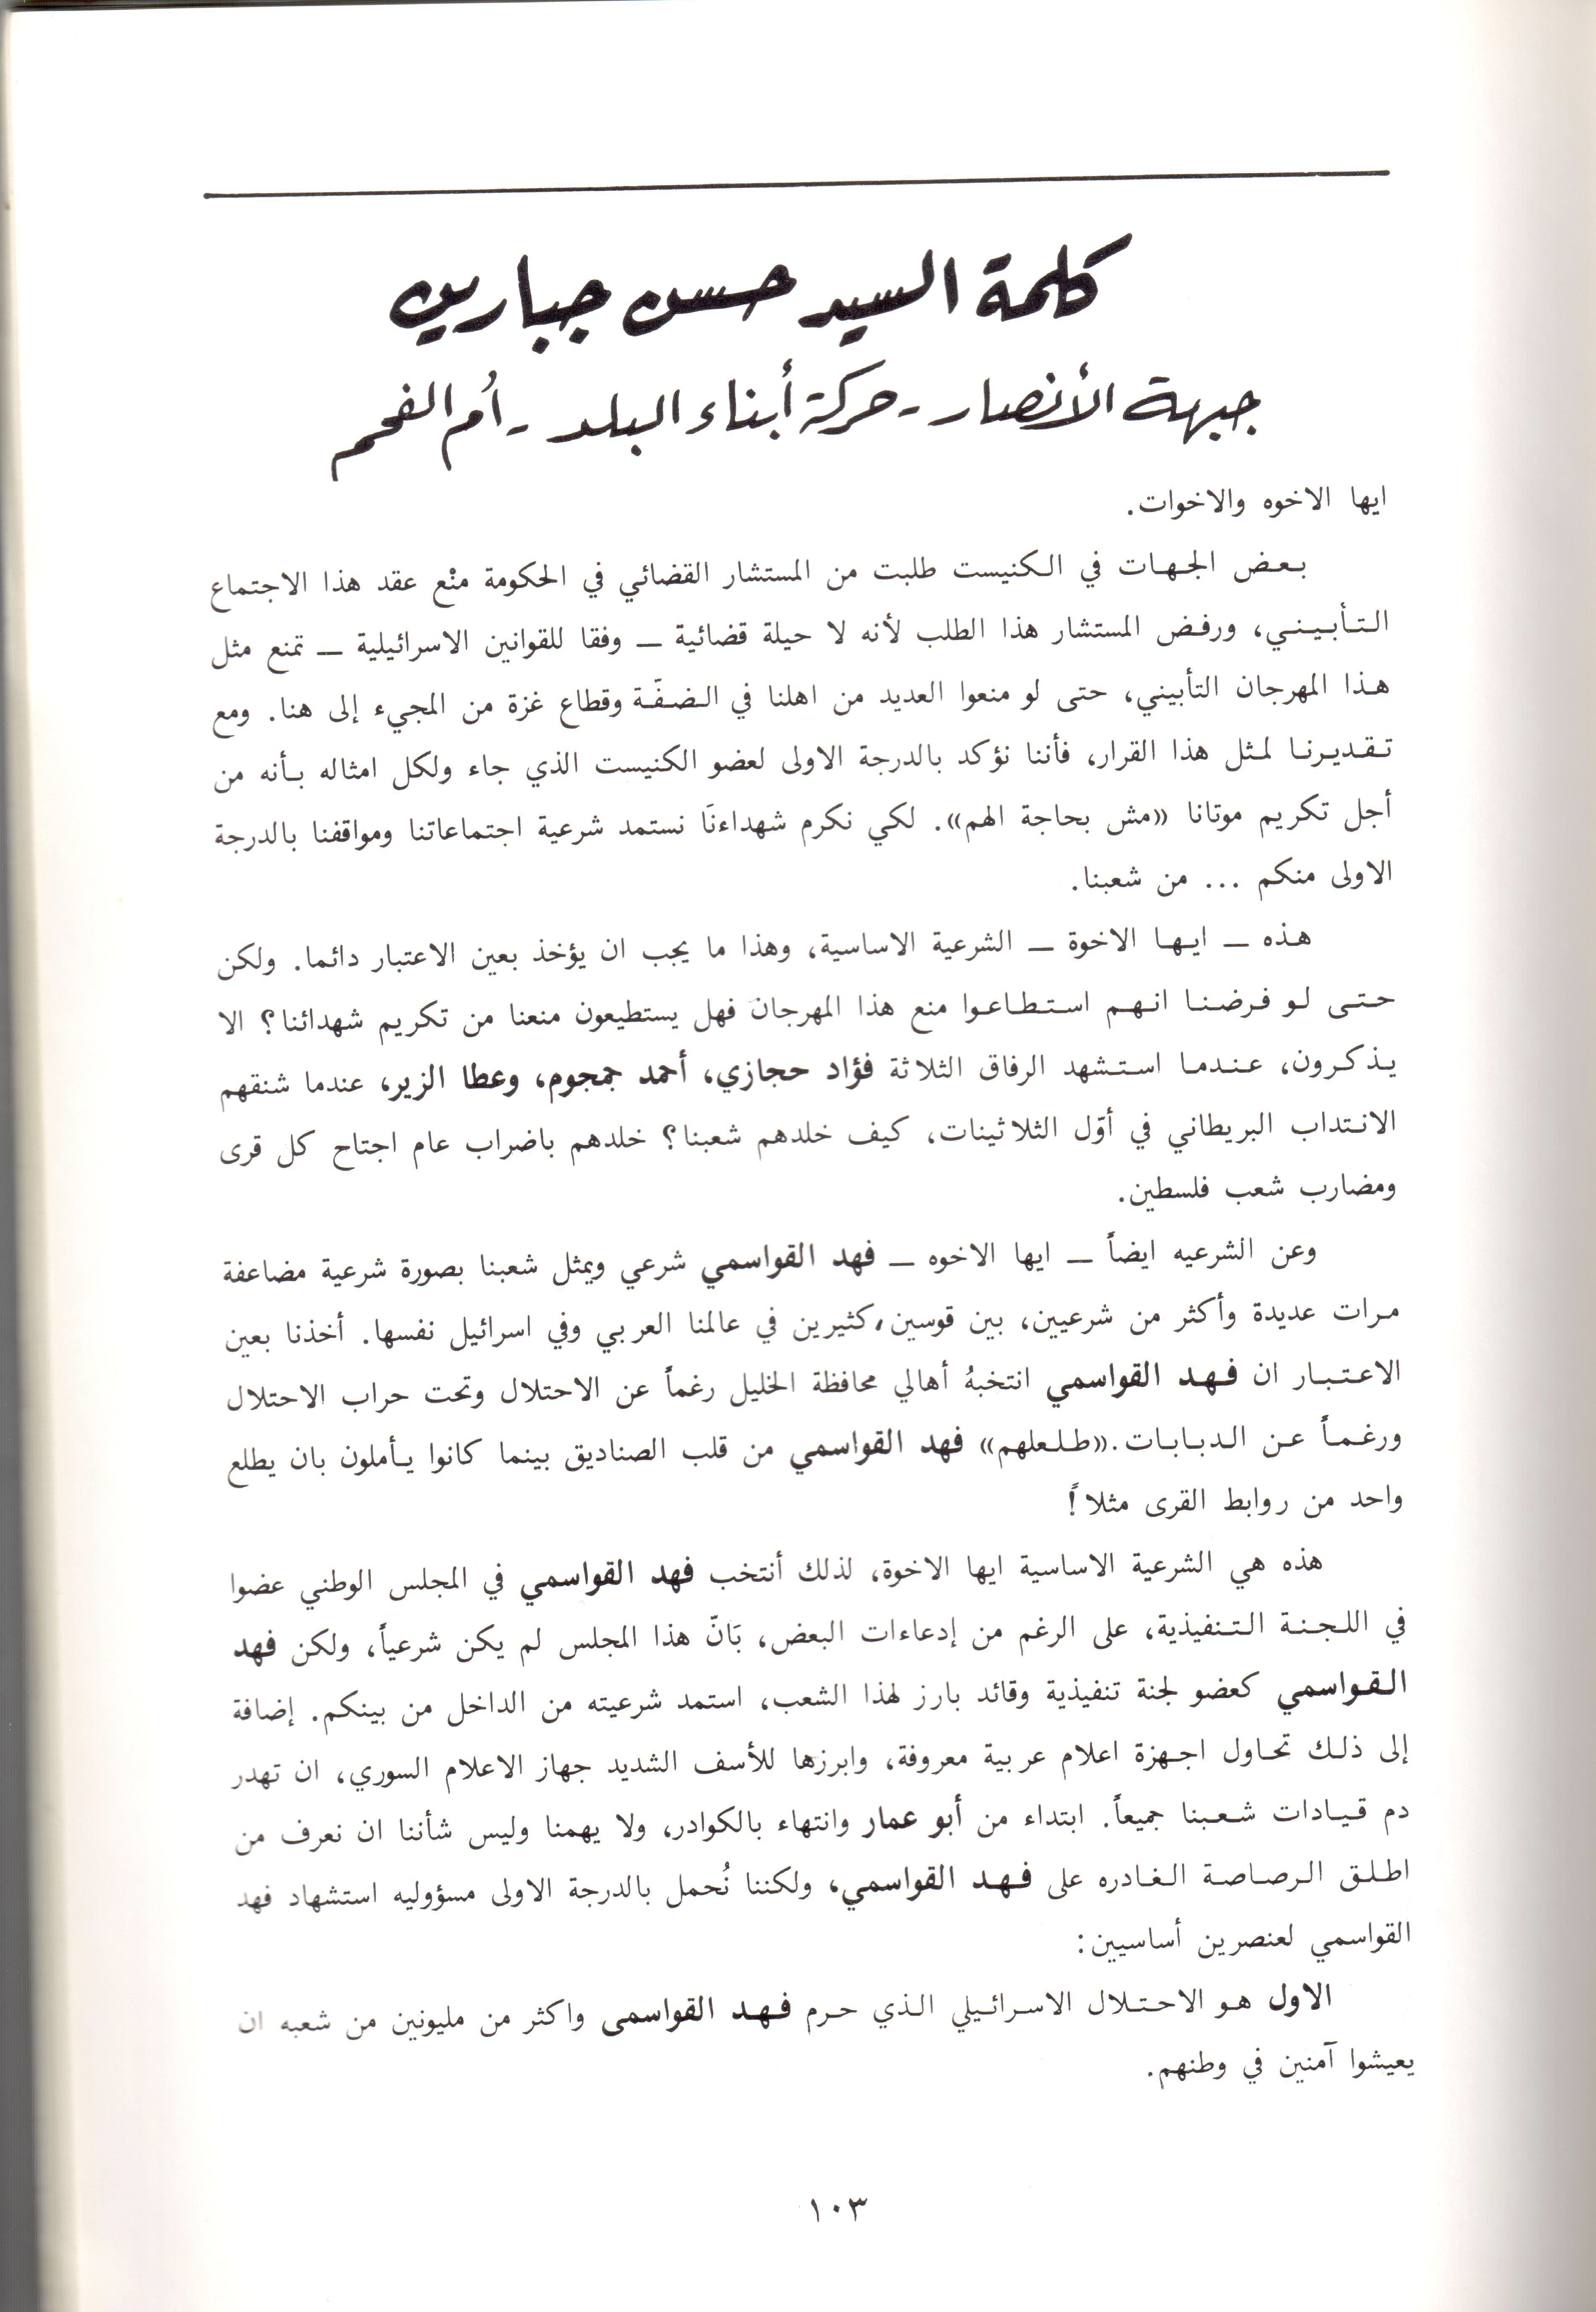 كلمة السيد حسن جبارين
جبهة الأنصار - حركة أبناء البلد - أم الفحم
ايها الاخوه والاخوات.
بعض الجهات في الكنيست طلبت من المستشار القضائي في الحكومة منْع عقد هذا الاجتماع
التأبيني، ورفض المستشار هذا الطلب لأنه لا حيلة قضائية — وفقا للقوانين الاسرائيلية — تمنع مثل
هذا المهرجان التأبيني، حتى لو منعوا العديد من اهلنا في الضفّة وقطاع غزة من المجيء إلى هنا. ومع
تقديرنا لمثل هذا القرار، فأننا نؤكد بالدرجة الاولى لعضو الكنيست الذي جاء ولكل امثاله بأنه من
أجل تكريم موتانا «مش بحاجة الهم». لكي نكرم شهداءنَا نستمد شرعية اجتماعاتنا ومواقفنا بالدرجة
الاولى منكم ... من شعبنا.
هذه — ايها الاخوة — الشرعية الاساسية، وهذا ما يجب ان يؤخذ بعين الاعتبار دائما. ولكن
حتى لو فرضنا انهم استطاعوا منع هذا المهرجان فهل يستطيعون منعنا من تكريم شهدائنا؟ الا
يذكرون، عندما استشهد الرفاق الثلاثة فؤاد حجازي، أحمد جمجوم، وعطا الزير، عندما شنقهم
الانتداب البريطاني في أوّل الثلاثينات، كيف خلدهم شعبنا؟ خلدهم باضراب عام اجتاح كل قرى
ومضارب شعب فلسطين.
وعن الشرعيه ايضاً — ايها الاخوه — فهد القواسمي شرعي ويمثل شعبنا بصورة شرعية مضاعفة
مرات عديدة وأكثر من شرعيين، بين قوسين، كثيرين في عالمنا العربي وفي اسرائيل نفسها. أخذنا بعين
الاعتبار ان فهد القواسمي انتخبهُ أهالي محافظة الخليل رغماً عن الاحتلال وتحت حراب الاحتلال
ورغماً عن الدبابات. «طلعلهم» فهد القواسمي من قلب الصناديق بينما كانوا يأملون بان يطلع
واحد من روابط القرى مثلاً!
هذه هي الشرعية الاساسية ايها الاخوة، لذلك أنتخب فهد القواسمي في المجلس الوطني عضوا
في اللجنة التنفيذية، على الرغم من إدعاءات البعض، بَانّ هذا المجلس لم يكن شرعياً، ولكن فهد
القواسمي كعضو لجنة تنفيذية وقائد بارز لهذا الشعب، استمد شرعيته من الداخل من بينكم. إضافة
إلى ذلك تحاول اجهزة اعلام عربية معروفة، وابرزها للأسف الشديد جهاز الاعلام السوري، ان تهدر
دم قيادات شعبنا جميعاً. ابتداء من أبو عمار وانتهاء بالكوادر، ولا يهمنا وليس شأننا ان نعرف من
اطلق الرصاصة الغادره على فهد القواسمي، ولكننا نُحمل بالدرجة الاولى مسؤوليه استشهاد فهد
القواسمي لعنصرين أساسيين:
الاول هو الاحتلال الاسرائيلي الذي حرم فهد القواسمى واكثر من مليونين من شعبه ان
يعيشوا آمنين في وطنهم.
١٠٣